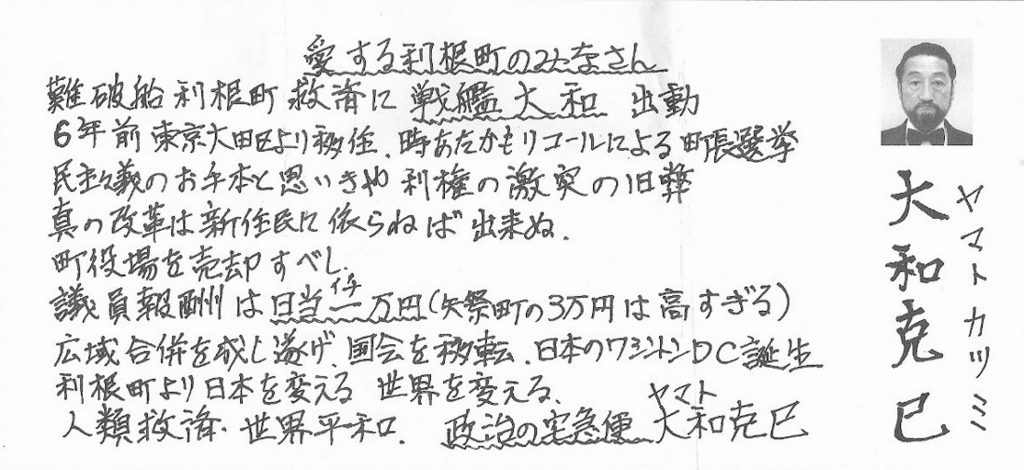 愛する利根町のみなさん
難破船利根町救済に戦艦大和出動
6年前東京大田区より移住、時あたかもリコールによる町長選挙
民主主義のお手本と思いきや利権の激突の旧弊
真の改革は新住民に依らねば出来ぬ.
町役場を売却すべし.
議員報酬は日当一万円(矢祭町の3万円は高すぎる)
イチ
広域合併を成し遂げ、国会を移転、日本のワシントンDC誕生
利根町より日本を変える 世界を変える.
人類救済・世界平和. 政治の宅急便 大和克巳
ヤマト
大和克巳
ヤマトカツミ